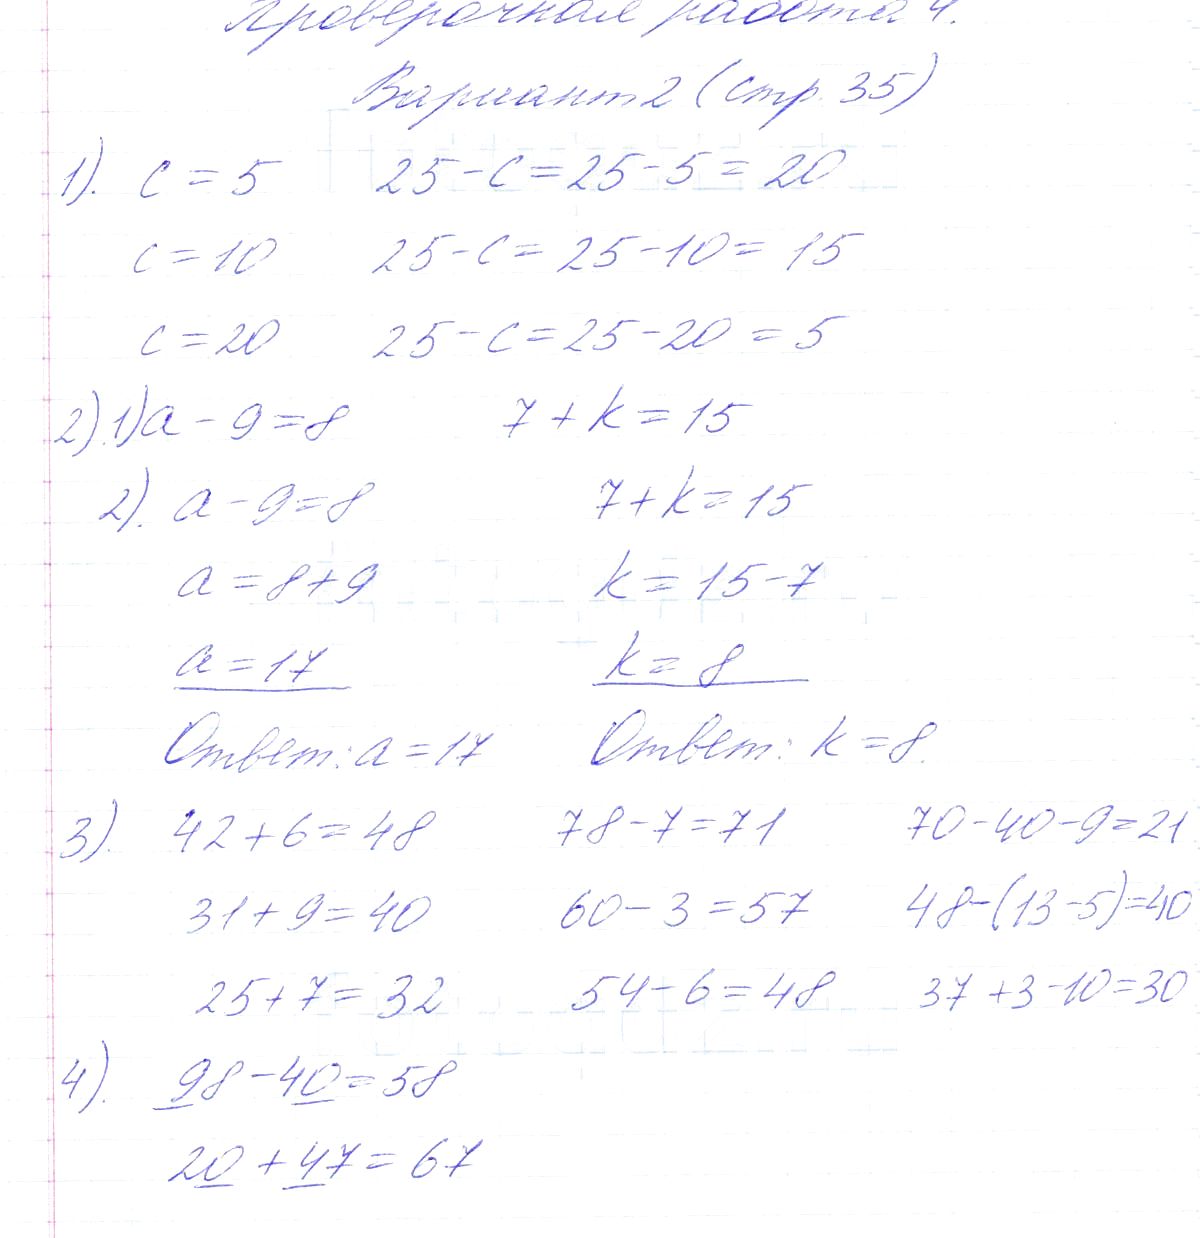 Проверочная работа 4.
Вариант 2 (стр. 35)
1). c = 5 25 - c = 25 - 5 = 20
c = 10 25 - c = 25 - 10 = 15
c = 20 25 - c = 25 - 20 = 5
2). 1) a - 9 = 8 7 + k = 15
2). a - 9 = 8 7 + k = 15
a = 8 + 9 k = 15 - 7
a = 17 k = 8
Ответ: a = 17 Ответ: k = 8.
3). 42 + 6 = 48 78 - 7 = 71 70 - 40 - 9 = 21
31 + 9 = 40 60 - 3 = 57 48 - (13 - 5) = 40
25 + 7 = 32 54 - 6 = 48 37 + 3 - 10 = 30
4). 98 - 40 = 58
20 + 47 = 67